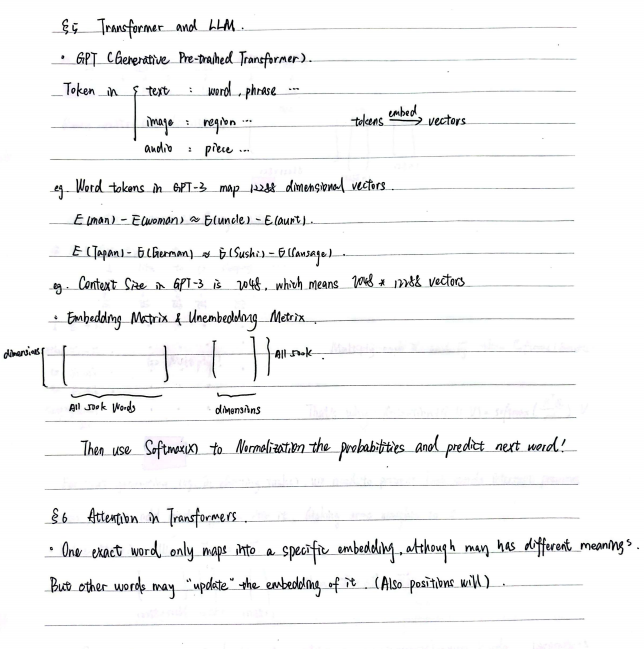 §5 Transformer and LLM.
• GPT (Generative Pre-trained Transformer).
Token in { text : word, phrase ...
image : region ...
tokens embed→ vectors
audio : piece ...
eg. Word tokens in GPT-3 map 12288 dimensional vectors.
E(man) - E(woman) ≈ E(uncle) - E(aunt).
E(Japan) - E(German) ≈ E(Sushi) - E(Sansage).
eg. Context Size in GPT-3 is 2048, which means 2048 * 12288 vectors
• Embedding Matrix & Unembedding Metrix.
dimensions { [ ] [ ] } All 500k.
All 500k Words dimensions
Then use Softmax(x) to Normalization the probabilities and predict next word!
§6 Attention in Transformers.
• One exact word only maps into a specific embedding, although may has different meanings.
But other words may "update" the embedding of it. (Also positions will).